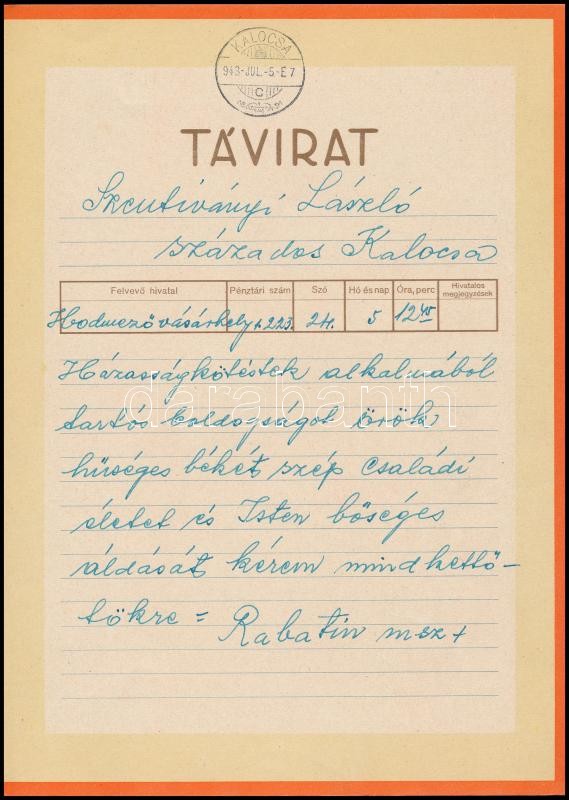 KALOCSA
943-JUL.-5-E7
C
TÁVIRAT
Szentiványi László
százados Kalocsa
Felvevő hivatal Pénztári szám Szó Hó és nap Óra, perc Hivatalos megjegyzések
Hodmezővásárhely + 223. 24. 5 12 45
Házasságkötéstek alkalmából
tartós boldogságot örök
hűséges békét szép családi
életet és Isten bőséges
áldását kérem mindkettő-
tökre = Rabatin msz +
darabanth